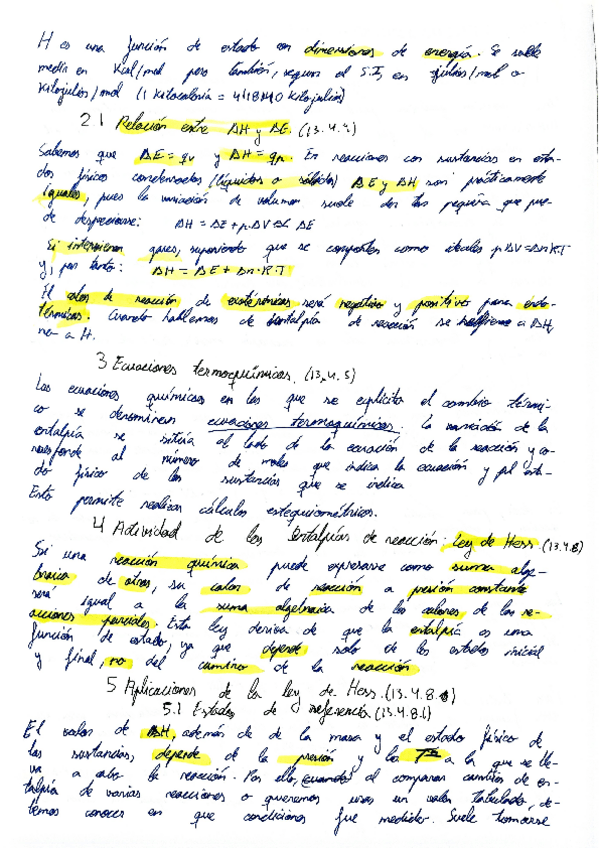 H es una función de estado con dimensiones de energía. Se suele
medir en Kcal/mol pero también, segun el S.I, en julios/mol o
Kilojulios/mol (1 Kilocaloría = 4'18 Kilojulios)
2.1 Relación entre ΔH y ΔE. (13.4.)
Sabemos que ΔE = qv y ΔH = qp. En reacciones con sustancias en esta-
dos físicos condensados (líquidos o sólidos) ΔE y ΔH son prácticamente
iguales, pues la variación de volumen suele ser tan pequeña que pue-
de despreciarse: ΔH = ΔE + p·ΔV ≈ ΔE
Si intervienen gases, suponiendo que se comportan como ideales p·ΔV = Δn·R·T
y, por tanto: ΔH = ΔE + Δn·R·T
El calor de reacción de exotérmicas será negativo y positivo para endo-
térmicas. Cuando hablemos de entalpía de reacción se refiere a ΔH,
no a H.
3 Ecuaciones termoquímicas. (13.4.5)
Las ecuaciones químicas en las que se explicita el cambio térmi-
co se denominan ecuaciones termoquímicas. La variación de la
entalpía se sitúa al lado de la ecuación de la reacción y co-
rresponde al número de moles que indica la ecuación y al esta-
do físico de las sustancias que se indica
Esto permite realizar cálculos estequiométricos.
4 Actividad de las Entalpías de reacción: Ley de Hess (13.4.8)
Si una reacción química puede expresarse como suma alge-
braica de otras, su calor de reacción a presión constante
será igual a la suma algebraica de los calores de las re-
acciones parciales. Esta ley deriva de que la entalpía es una
función de estado, ya que depende solo de los estados inicial
y final, no del camino de la reacción
5 Aplicaciones de la ley de Hess. (13.4.8.)
5.1 Estados de referencia. (13.4.8.1)
El valor de ΔH, además de de la masa y el estado físico de
las sustancias, depende de la presión y la Tª a la que se lle-
va a cabo la reacción. Por ello, cuando al comparar cambios de en-
talpía de varias reacciones o queremos usar un valor tabulado, de-
bemos conocer en que condiciones fue medido. Suele tomarse